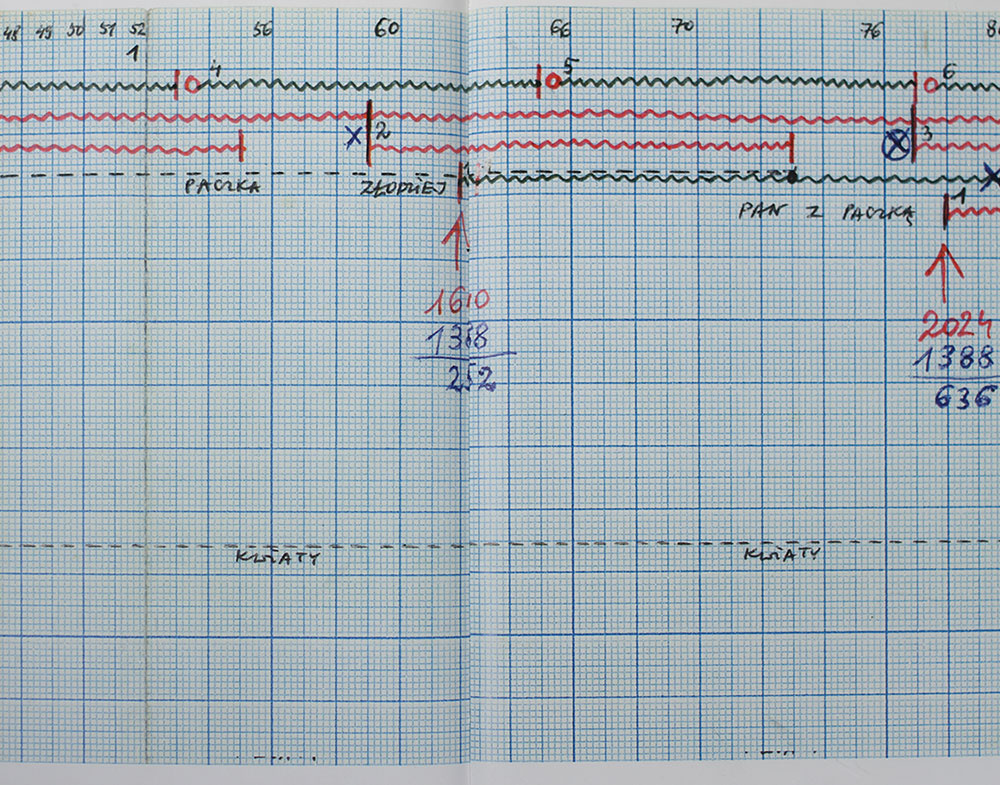 48 49 50 51 52 56 60 66 70 76
1
4 5 6
2 3
PACZKA ZŁODZIEJ 1
PAN Z PACZKĄ 1
1610
1358
252
2024
1388
636
KWIATY KWIATY